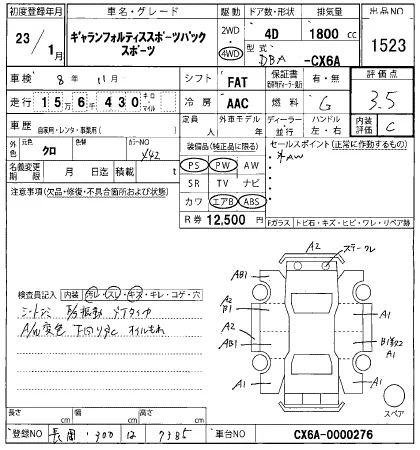 初度登録年月 車名・グレード 駆動 ドア数・形状 排気量 出品NO
23年1月 ギャランフォルティススポーツバック スポーツ 2WD 4WD 4D 1800 cc 1523
型式 DBA -CX6A
車検 8年11月 シフト FAT 保証書 有・無 評価点
走行 15万6千430 キロ・マイル 冷房 AAC 燃料 G 3.5
車歴 自家用・レンタ・事業用( ) 定員 人 外車モデル 年 ディーラー 並行 ハンドル 左・右 内装評価 C
外色 元色 クロ 色替 カラーNO X42
装備品(純正品に限る) セールスポイント(正常に作動するもの)
PS PW AW
AW
SR TV ナビ
カワ エアB ABS
名義変更期限 月 日迄 積載 t
注意事項(欠品・修復・不具合箇所および状態)
R券 12,500 円 Fガラス トビ石・キズ・ヒビ・ワレ・リペア跡
A2
AB1 A1
A2
B1 A1
A2
AB1
A1 A1
スペア
検査員記入 内装 汚レ・スレ・キズ・キレ・コゲ・穴
A/W変色 下回りサビ オイルもれ
長さ cm 幅 cm 高さ cm
登録NO 長岡 300 に 7385 車台NO CX6A-0000276